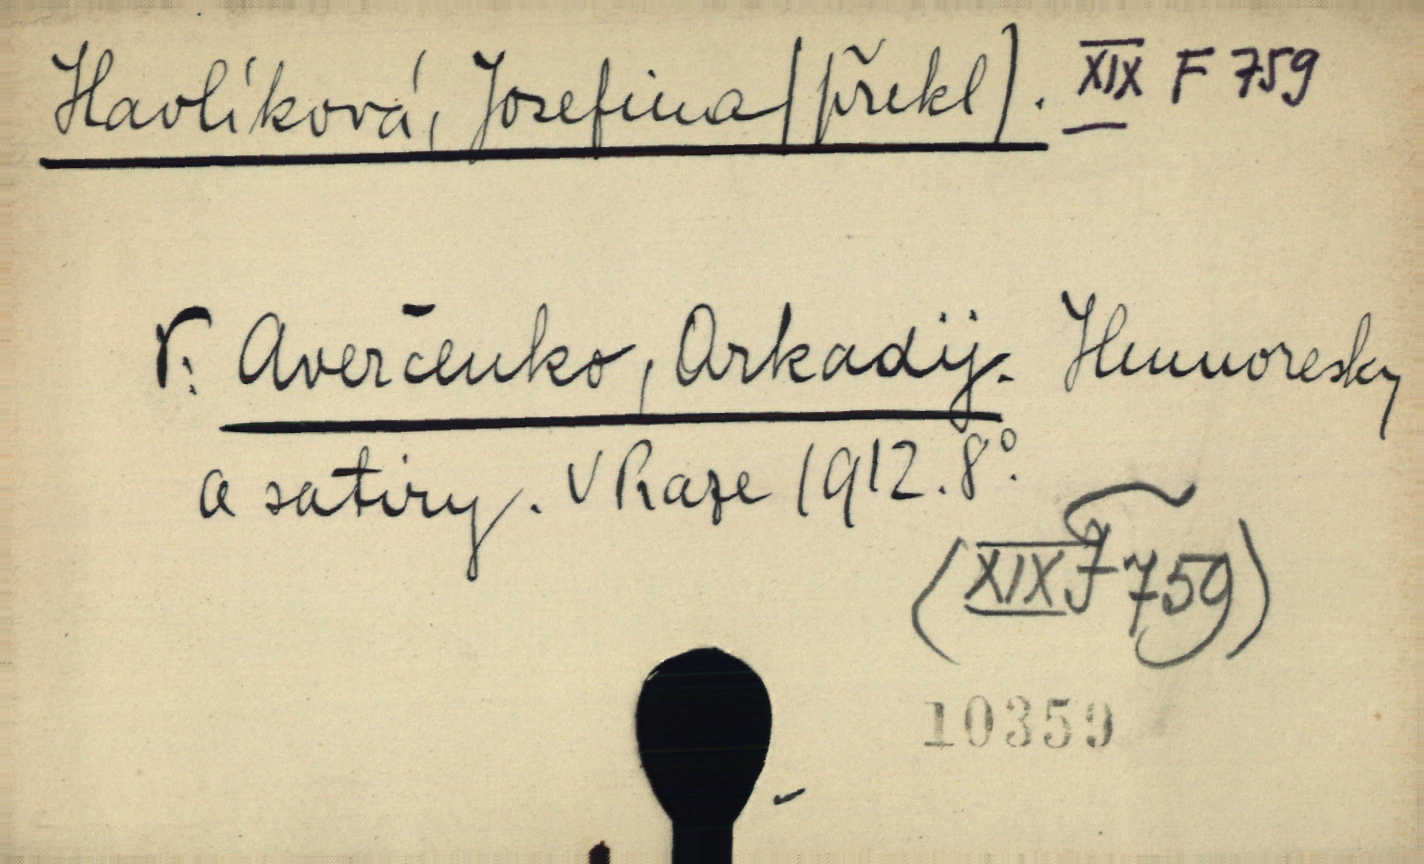 Havlíková, Josefina (překl). XIX F 759
v: Averčenko, Arkadij. Humoresky
a satiry. V Praze 1912. 8°.
(XIX F 759)
10359